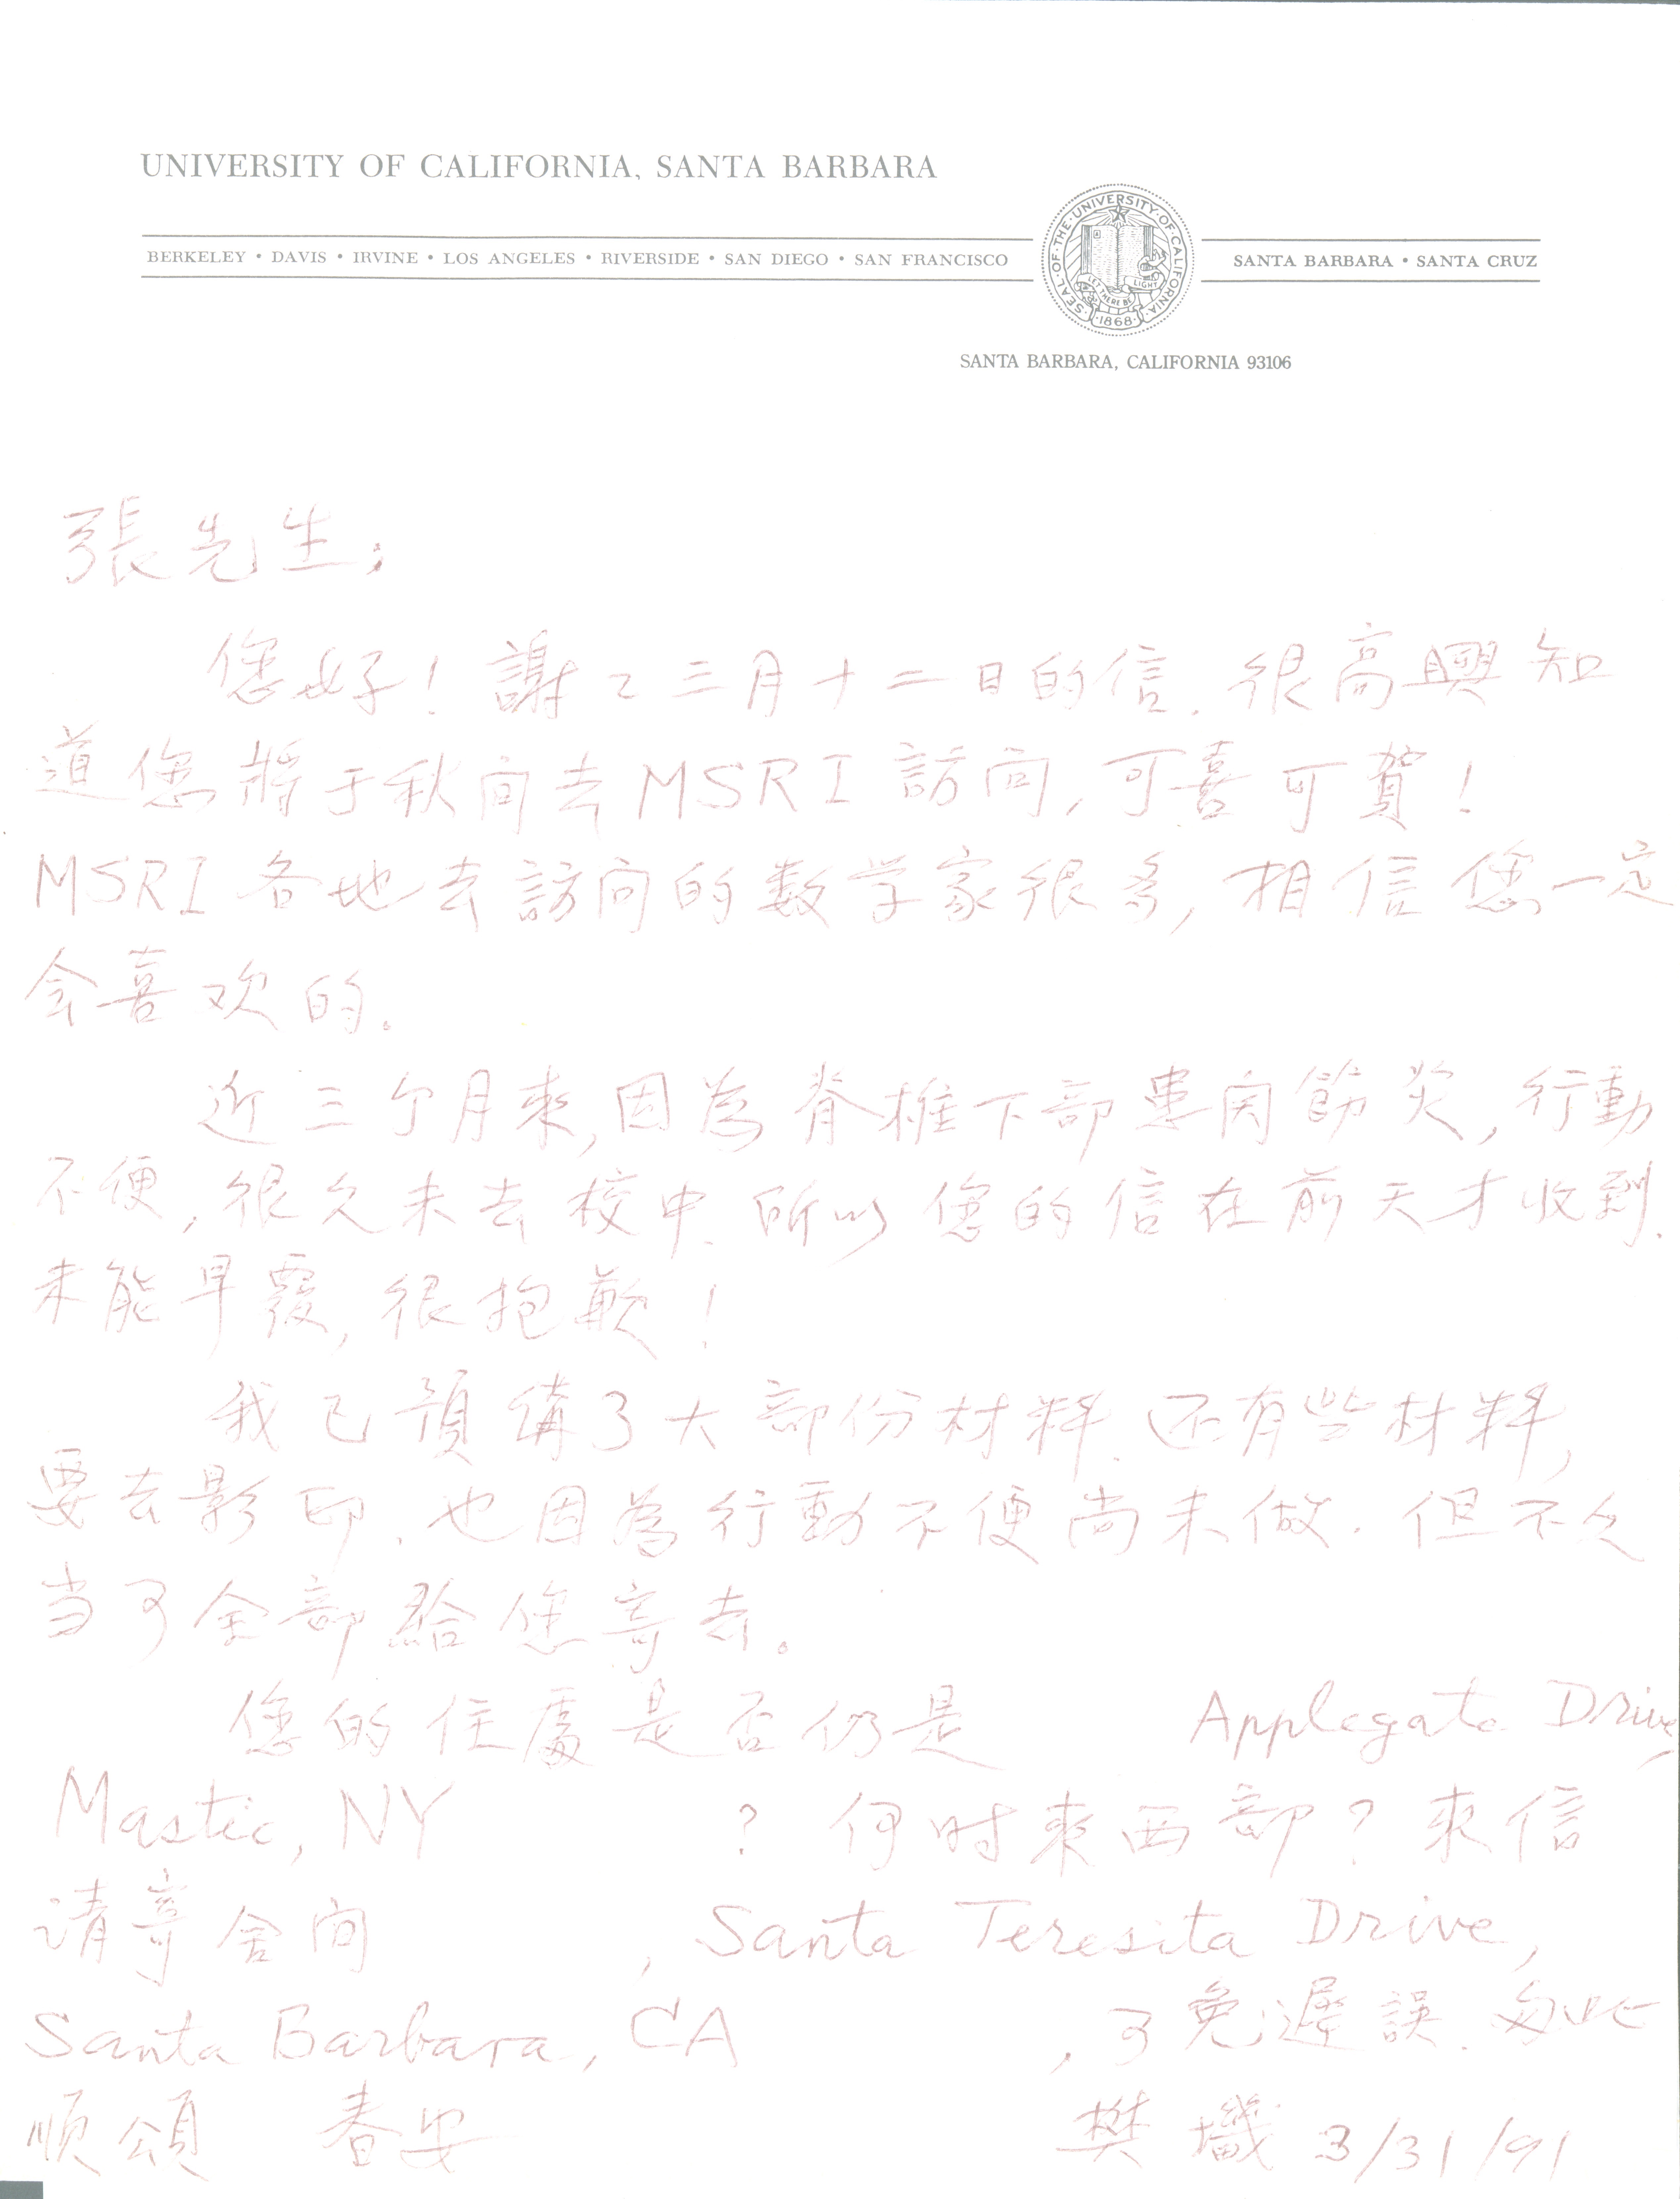 UNIVERSITY OF CALIFORNIA, SANTA BARBARA
BERKELEY • DAVIS • IRVINE • LOS ANGELES • RIVERSIDE • SAN DIEGO • SAN FRANCISCO
SEAL OF THE UNIVERSITY OF CALIFORNIA
LET THERE BE LIGHT
1868
SANTA BARBARA • SANTA CRUZ
SANTA BARBARA, CALIFORNIA 93106
張先生:
您好！謝々三月十二日的信. 很高興知
道您將于秋间去MSRI訪问, 可喜可賀！
MSRI各地去訪问的数学家很多, 相信您一定
会喜欢的.
近三个月來, 因為脊椎下部患関節炎, 行動
不便, 很久未去校中. 所以您的信在前天才收到.
未能早覆, 很抱歉！
我已預備了大部份材料. 还有些材料,
要去影印, 也因為行動不便尚未做. 但不久
当可全部給您寄去。
您的住處是否仍是 Applegate Drive,
Mastic, NY ? 何时來西部? 來信
请寄舍间 , Santa Teresita Drive,
Santa Barbara, CA , 可免遲誤. 匆此
順頌 春安 樊𰋀 3/31/91